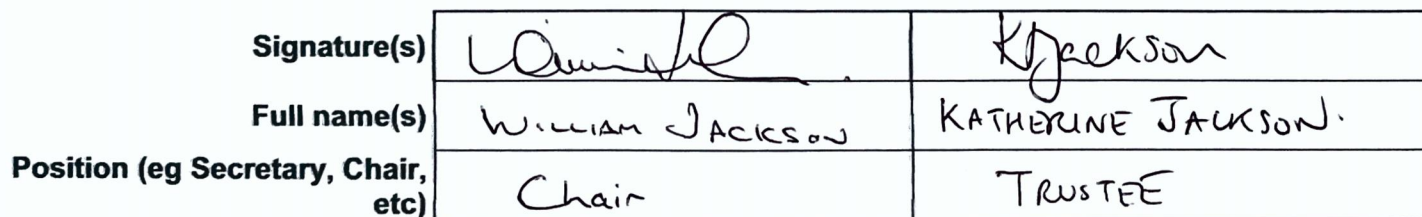 Signature(s) KJackson
Full name(s) WILLIAM JACKSON KATHERINE JACKSON.
Position (eg Secretary, Chair,
etc) Chair TRUSTEE